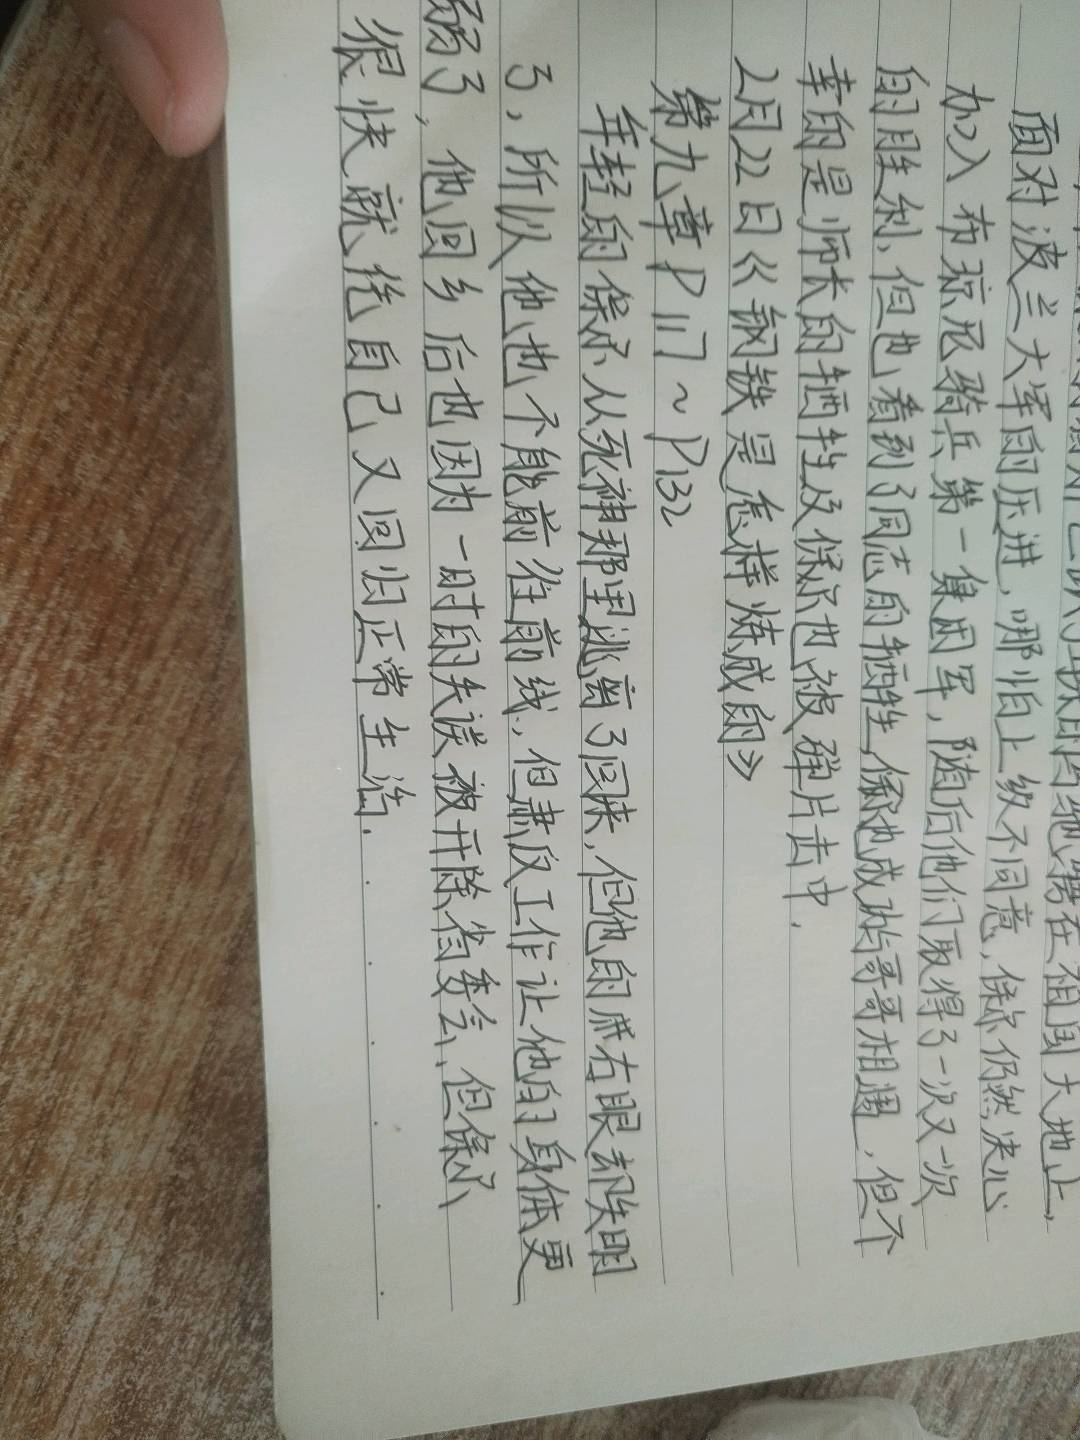 地踏在祖国大地上,
面对波兰大军的压进,哪怕上级不同意,保尔仍然决心
加入布琼尼骑兵第一集团军,随后他们取得了一次又一次
的胜利,但也看到了同志的牺牲,保尔也成功的与哥哥相遇,但不
幸的是师长的牺牲及保尔也被弹片击中.
2月22日《钢铁是怎样炼成的》
第九章P117~P132
年轻的保尔从死神那里逃离了回来,但他的右眼却失明
了,所以他也不能前往前线,但肃反工作让他的身体更
弱了,他回乡后也因为一时的失误被开除省委会,但保尔
很快就给自己又回归正常生活.